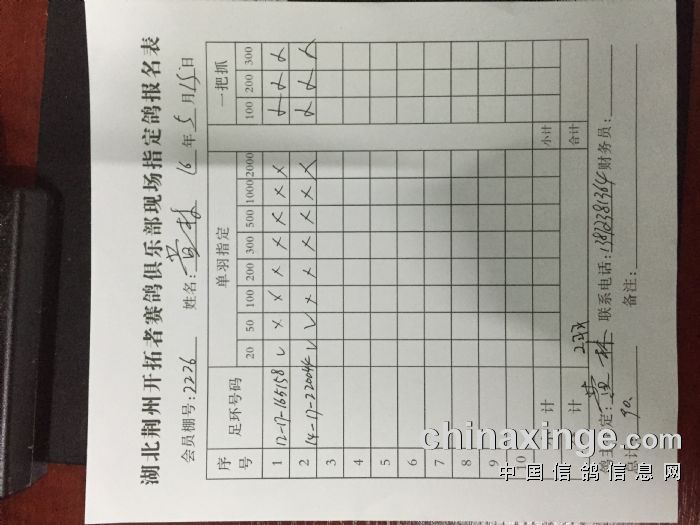 湖北荆州开拓者赛鸽俱乐部现场指定鸽报名表
会员棚号:2226 姓名:黄林 16年5月15日
序号 足环号码 单羽指定 一把抓
20 50 100 200 300 500 1000 2000 100 200 300
1 12-17-165158 √ × × × × × × ×
2 14-17-220044 √ √ × × × × × ×
3
4
5
6
7
8
9
10
计 小计
计 合计
鸽主 定:黄林 联系电话: 财务员:
总计 90. 备注:
chinaxinge.com
中国信鸽信息网